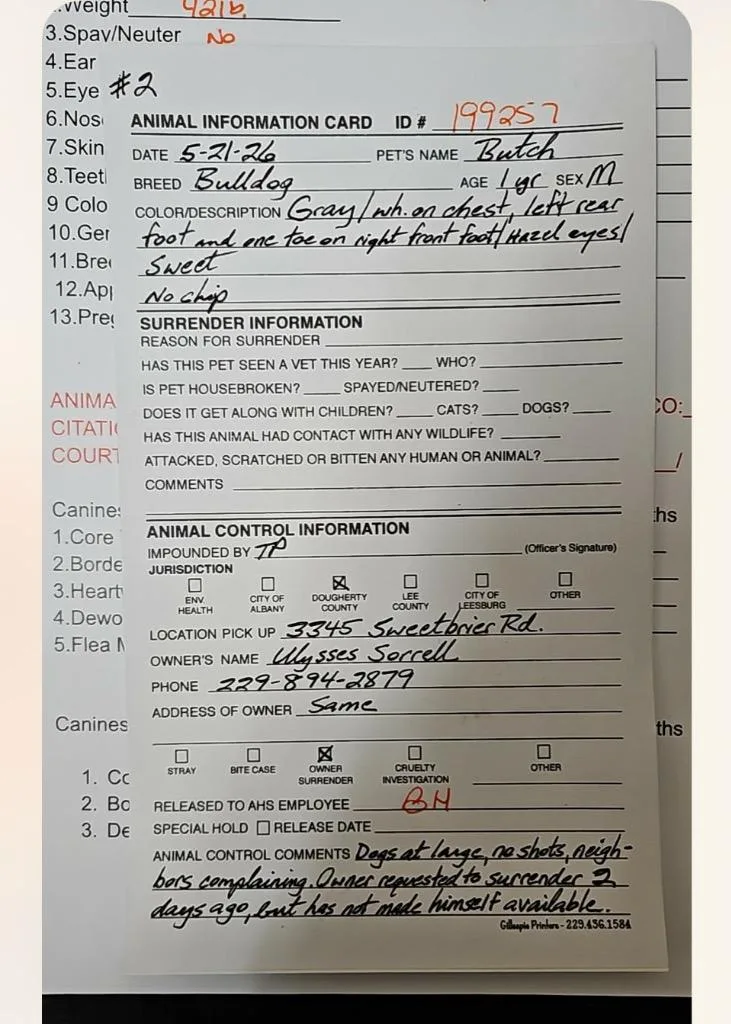 .Weight 42lb.
3.Spav/Neuter No
4.Ear
5.Eye #2
6.Nos
7.Skin
8.Teet
9 Colo
10.Ger
11.Bre
12.App
13.Preg
ANIMA
CITATI
COURT
CO:
/
Canine
1.Core
2.Borde
3.Heart
4.Dewo
5.Flea M
ths
Canines
ths
1. Co
2. Bo
3. De
ANIMAL INFORMATION CARD ID # 199257
DATE 5-21-26 PET'S NAME Butch
BREED Bulldog AGE 1 yr SEX M
COLOR/DESCRIPTION Gray/wh. on chest, left rear
foot and one toe on right front foot/Hazel eyes/
Sweet
No chip
SURRENDER INFORMATION
REASON FOR SURRENDER
HAS THIS PET SEEN A VET THIS YEAR? WHO?
IS PET HOUSEBROKEN? SPAYED/NEUTERED?
DOES IT GET ALONG WITH CHILDREN? CATS? DOGS?
HAS THIS ANIMAL HAD CONTACT WITH ANY WILDLIFE?
ATTACKED, SCRATCHED OR BITTEN ANY HUMAN OR ANIMAL?
COMMENTS
ANIMAL CONTROL INFORMATION
IMPOUNDED BY TP (Officer's Signature)
JURISDICTION
☐ ENV. HEALTH ☐ CITY OF ALBANY ☒ DOUGHERTY COUNTY ☐ LEE COUNTY ☐ CITY OF LEESBURG ☐ OTHER
LOCATION PICK UP 3345 Sweetbrier Rd.
OWNER'S NAME Ulysses Sorrell
PHONE 229-894-2879
ADDRESS OF OWNER Same
☐ STRAY ☐ BITE CASE ☒ OWNER SURRENDER ☐ CRUELTY INVESTIGATION ☐ OTHER
RELEASED TO AHS EMPLOYEE BH
SPECIAL HOLD ☐ RELEASE DATE
ANIMAL CONTROL COMMENTS Dogs at large, no shots, neigh-
bors complaining. Owner requested to surrender 2
days ago, but has not made himself available.
Gillespie Printers - 229.436.1584